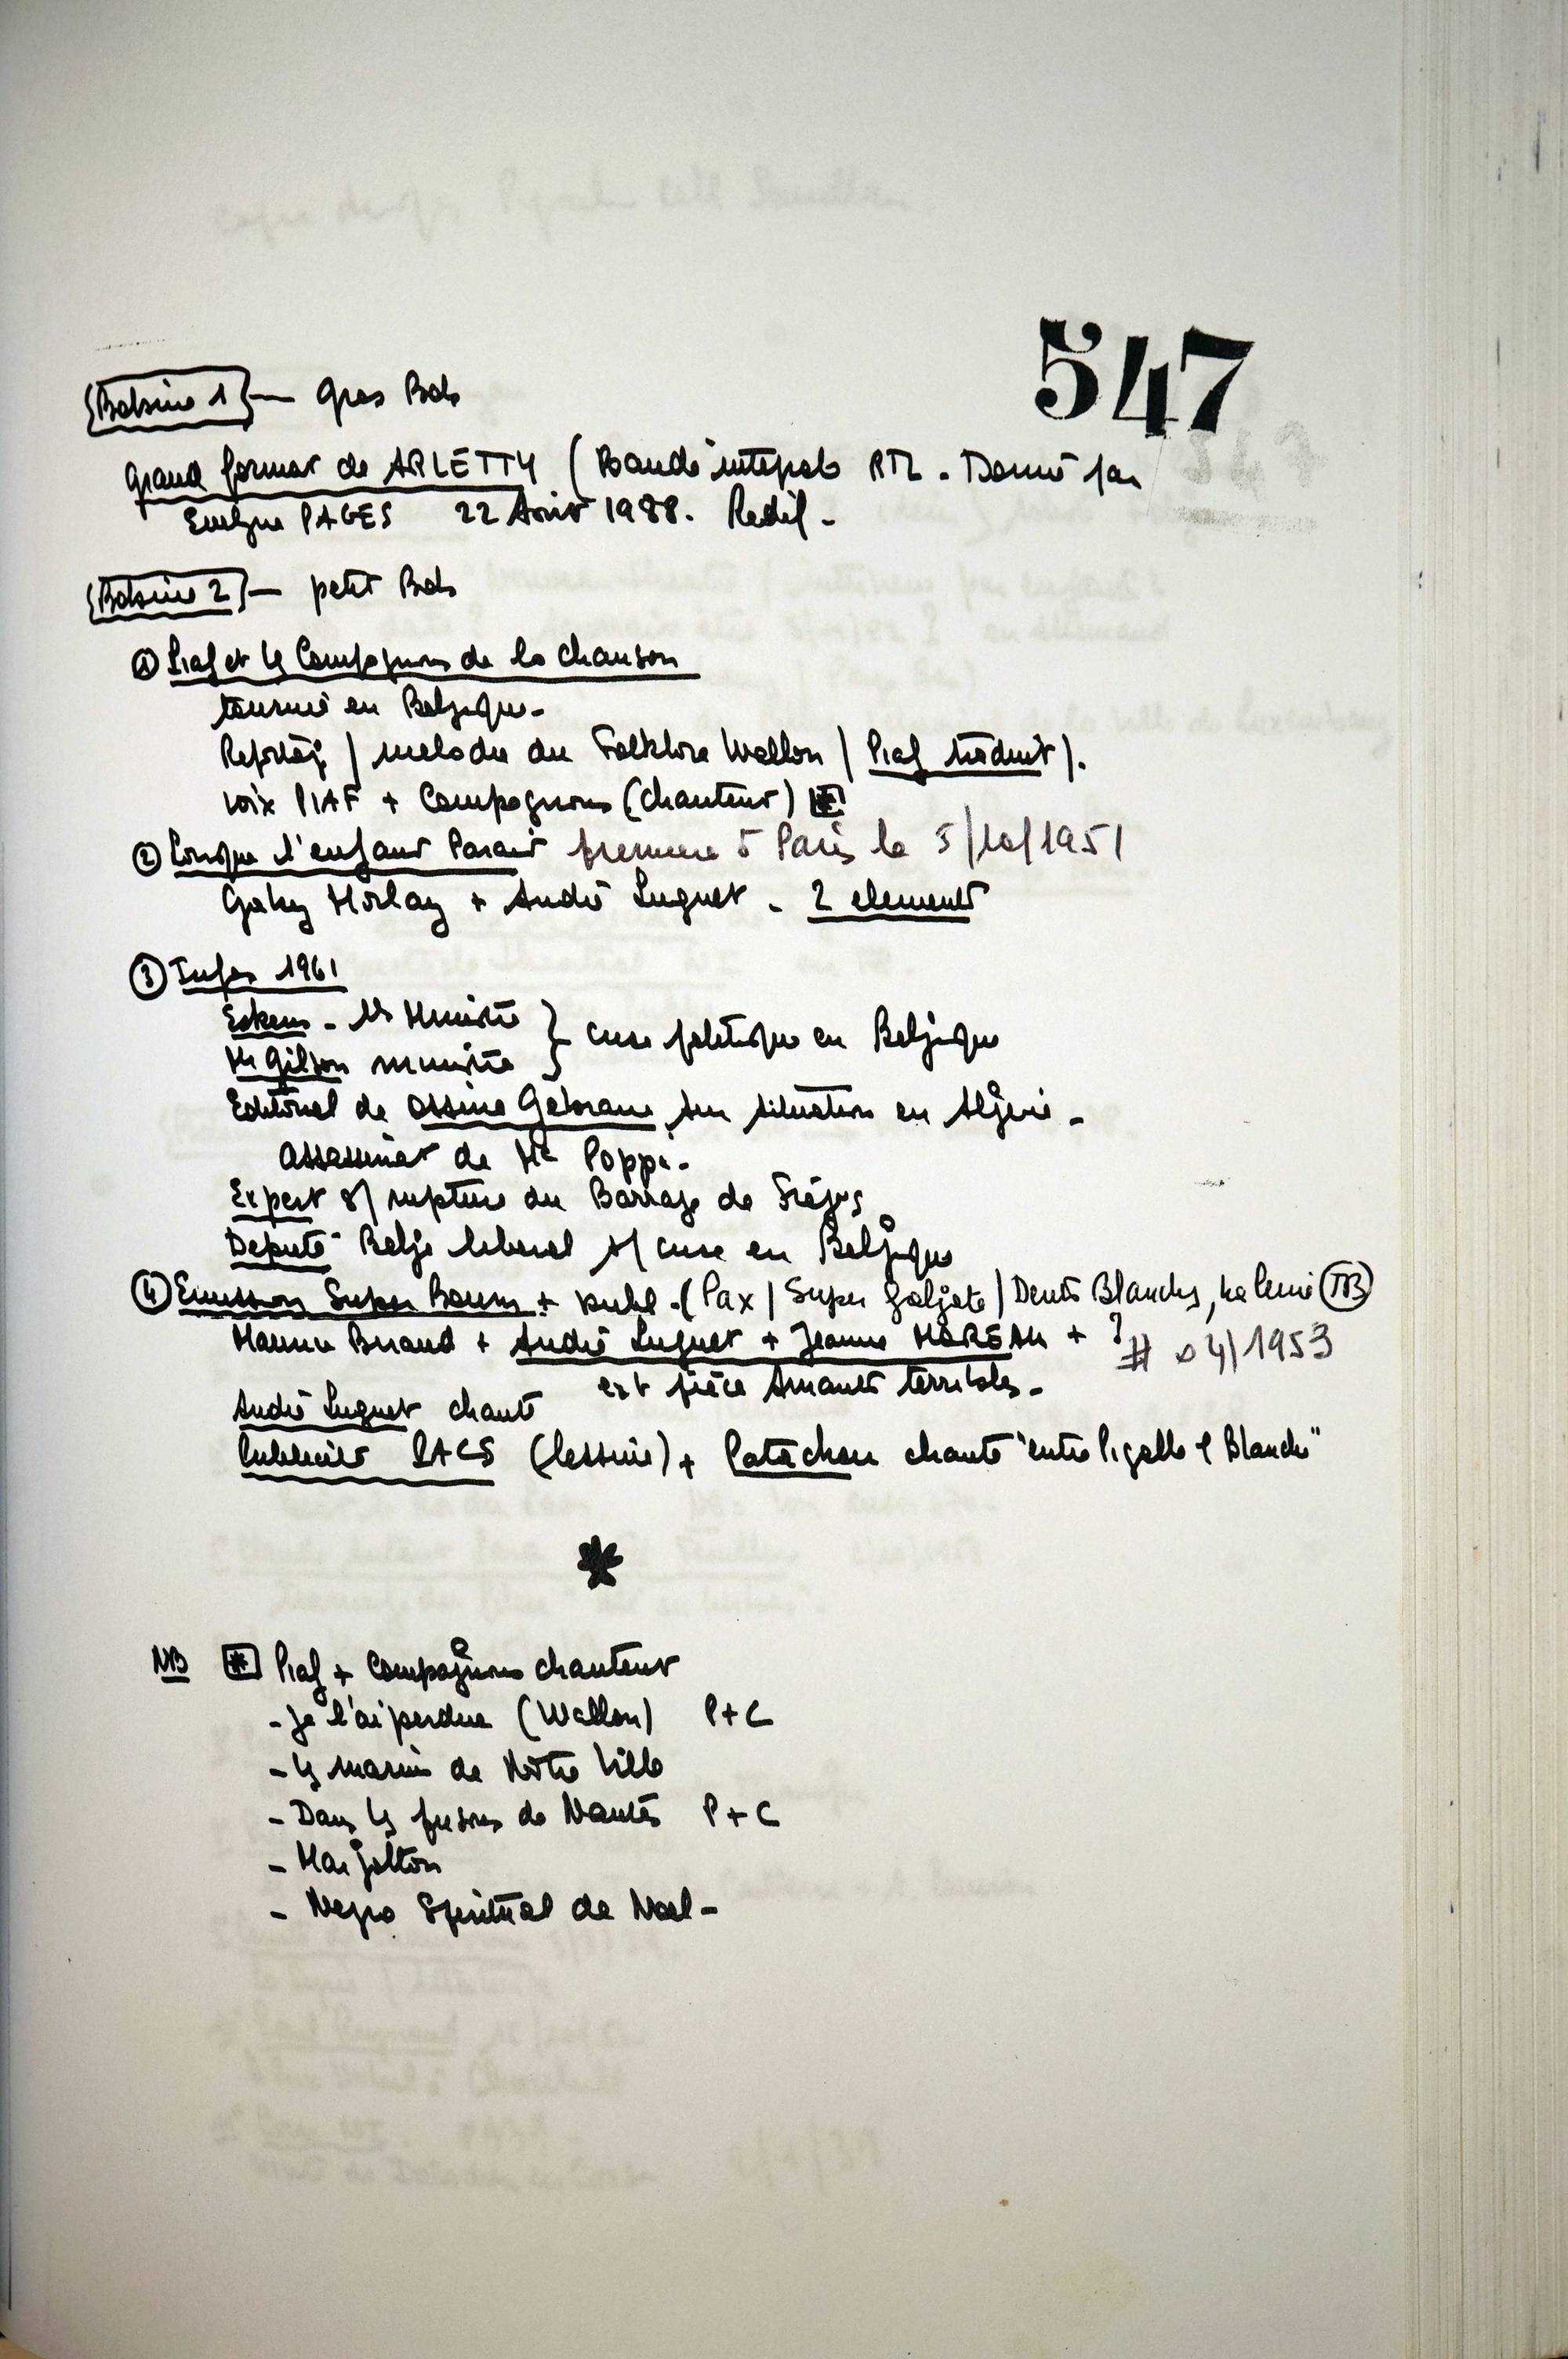 547
Bobine 1 — gros Bob
Grand format de ARLETTY (Bande intégrale RTL. Donné par
Evelyne PAGES 22 Août 1988. Redif.
Bobine 2 — petit Bob
① Piaf et les Compagnons de la chanson
tournée en Belgique.
Reportage / mélodie du Folklore Wallon / Piaf traduit).
voix PIAF + Compagnons (chantent) *
② Lorsque l'enfant Parait première à Paris le 5/10/1951
Gaby Morlay + André Luguet. 2 elements
③ Infos 1961
Eskens. 1er Ministre } crise politique en Belgique
Mr Gilson ministre
Editorial de sur situation en Algérie.
assassinat de Me Poppi.
Expert s/ rupture du Barrage de Fréjus
Député Belge libéral s/ crise en Belgique
④ Emission Super Boum + publ. (Pax / Super / Dents Blanches, TB
Maurice Briand + André Luguet + Jeanne MOREAU + ? # 04/1953
ext pièce Amants terribles.
André Luguet chante
Publicité PACS (lessive) + Patachou chante "entre Pigalle & Blanche"
*
NB * Piaf + Compagnons chantent
- Je l'ai perdue (Wallon) P+C
- Les de Notre Ville
- Dans les prisons de Nantes P+C
- Margoton
- Negro Spiritual de Noel -